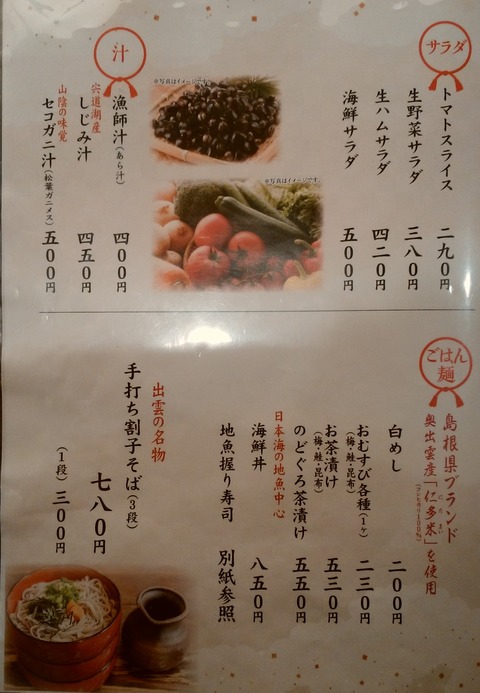 サラダ
トマトスライス 二九〇円
生野菜サラダ 三八〇円
生ハムサラダ 四二〇円
海鮮サラダ 五〇〇円
※写真はイメージです。
※写真はイメージです。
汁
漁師汁(あら汁) 四〇〇円
宍道湖産
しじみ汁 四五〇円
山陰の味覚
セコガニ汁(松葉ガニメス) 五〇〇円
ごはん
麺
島根県ブランド
奥出雲産「仁多米」を使用
にたまい
(コシヒカリ100%)
白めし 二〇〇円
おむすび各種(1ヶ) 二三〇円
(梅・鮭・昆布)
お茶漬け 五三〇円
(梅・鮭・昆布)
のどぐろ茶漬け 五五〇円
日本海の地魚中心
海鮮丼 八五〇円
地魚握り寿司 別紙参照
出雲の名物
手打ち割子そば(3段) 七八〇円
(1段) 三〇〇円